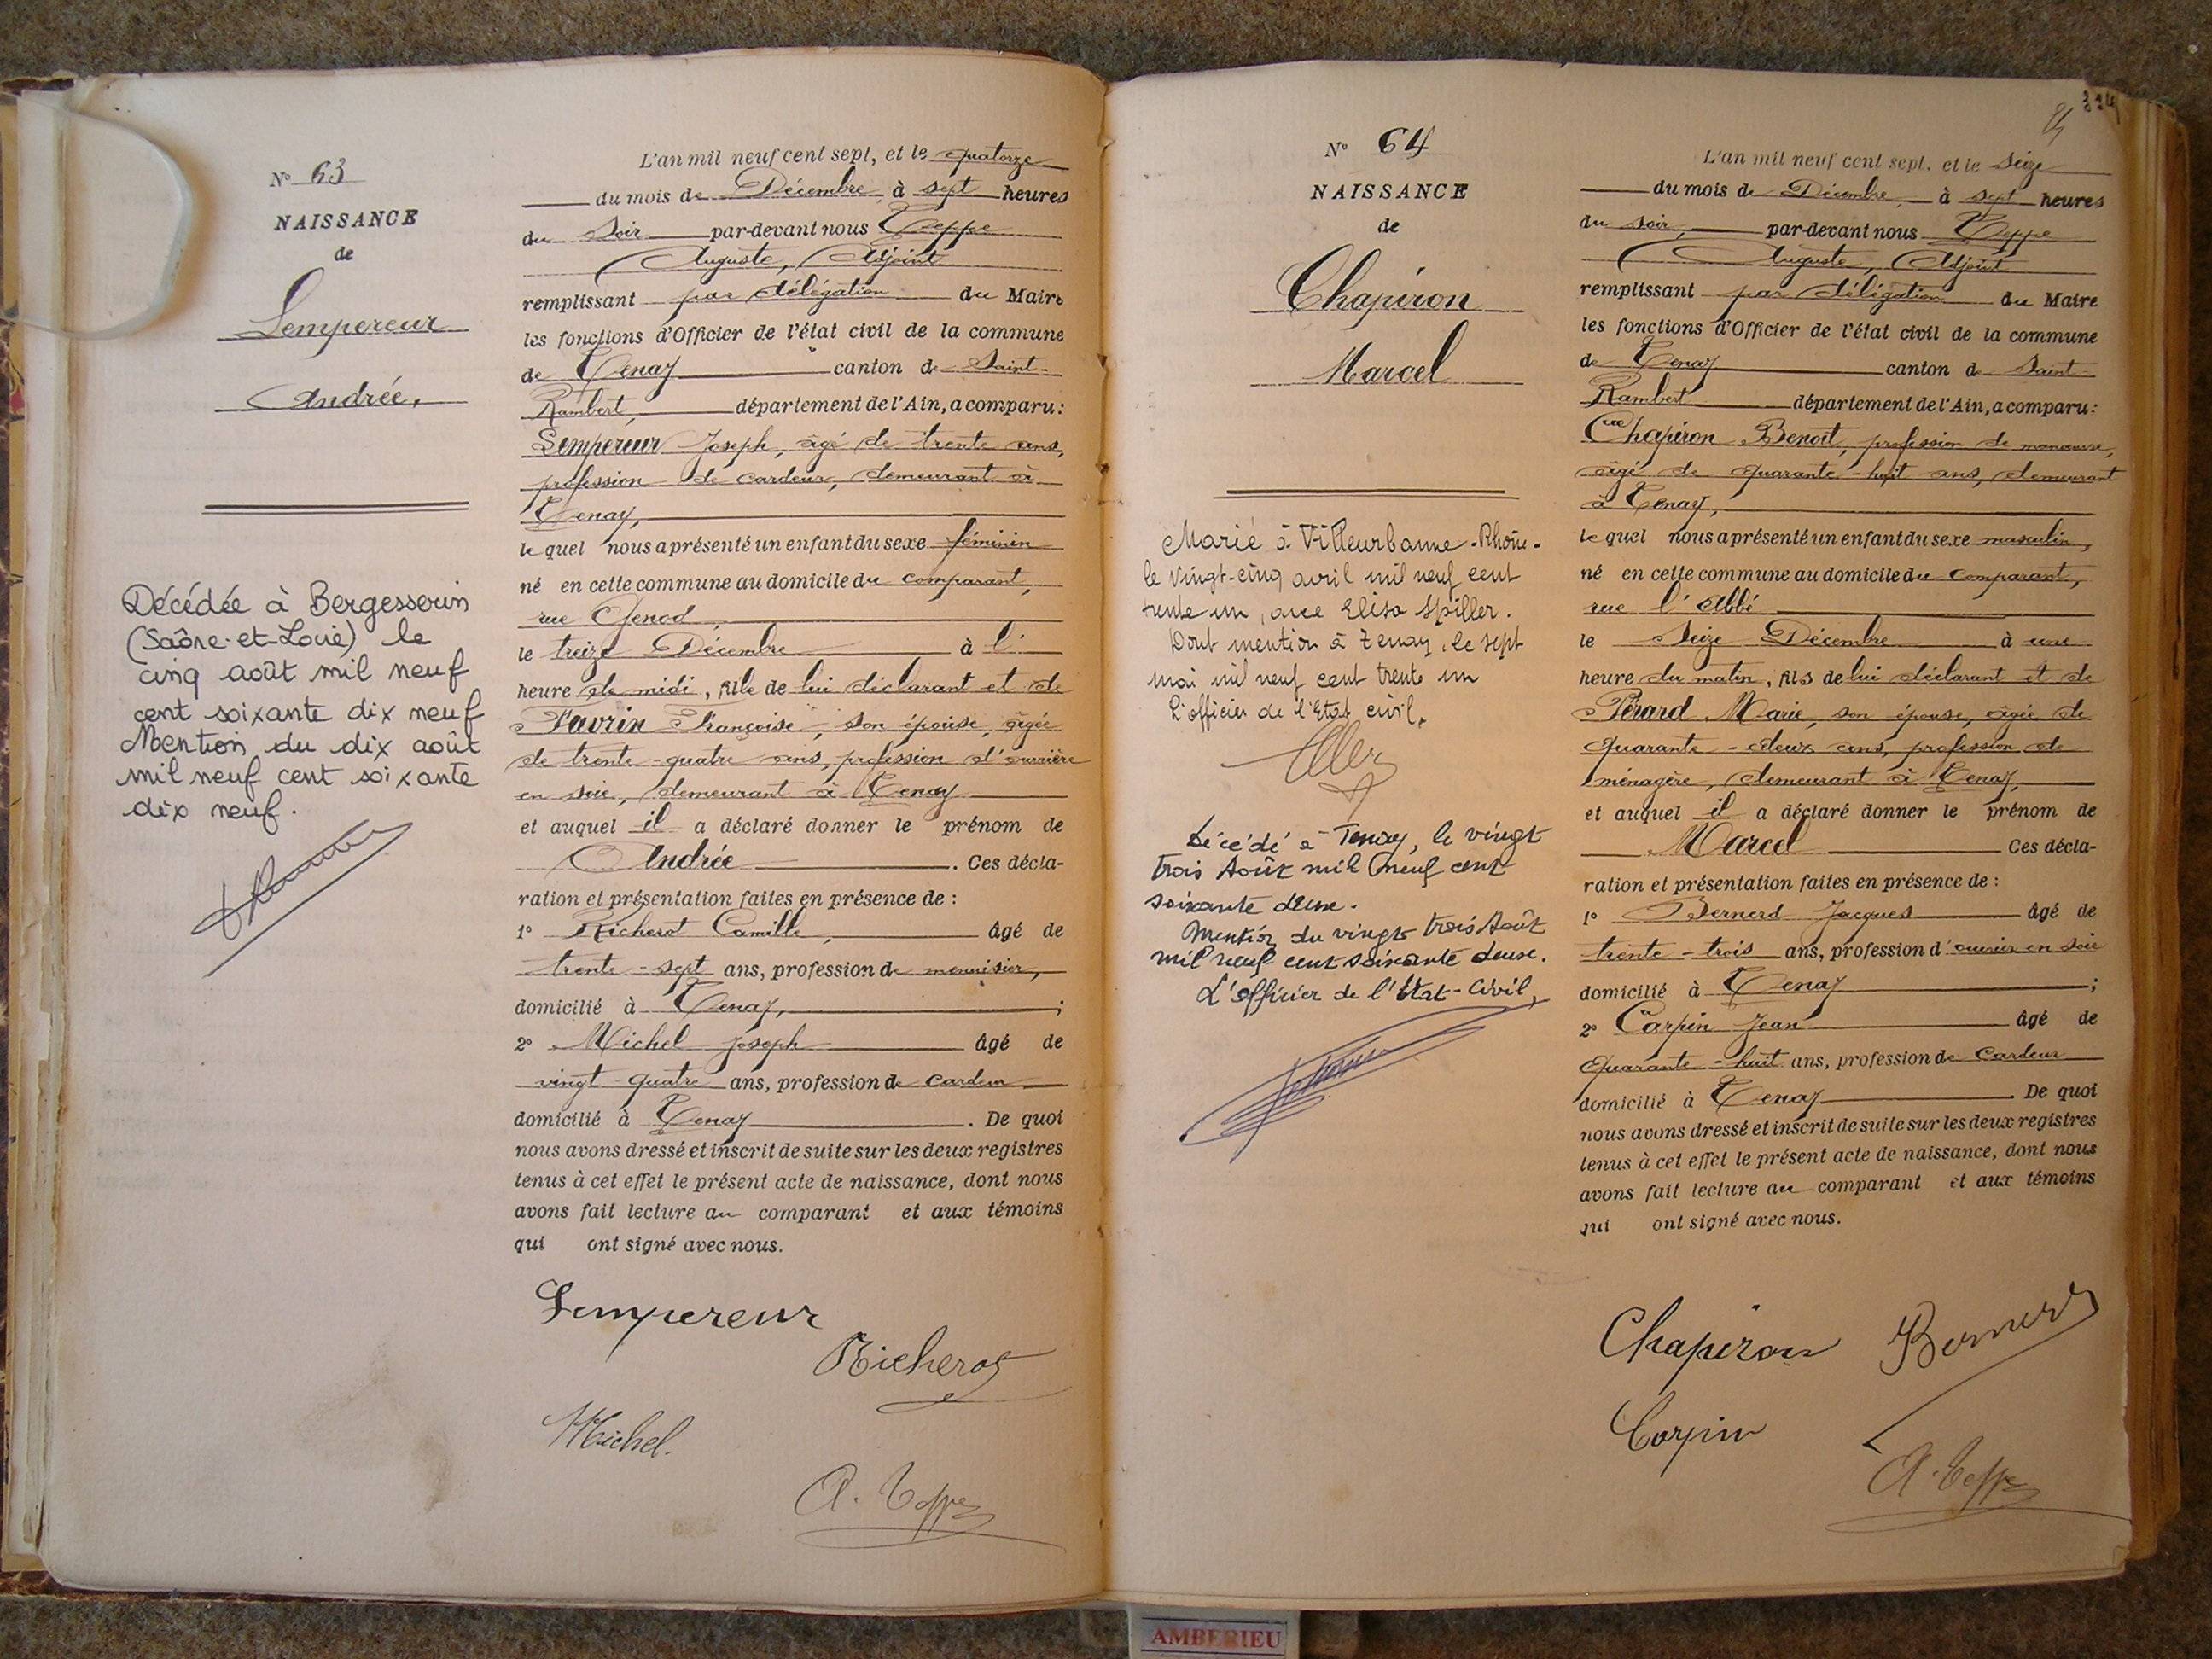 Nº 63
NAISSANCE
de
Lempereur
Andrée,
Décédée à Bergesserin
(Saône-et-Loire) le
cinq août mil neuf
cent soixante dix neuf
Mention du dix août
mil neuf cent soixante
dix neuf.
L'an mil neuf cent sept, et le quatorze
du mois de Décembre, à sept heures
du soir par-devant nous Teppe
Auguste, Adjoint
remplissant par délégation du Maire
les fonctions d'Officier de l'état civil de la commune
de Tenay canton de Saint-
Rambert, département de l'Ain, a comparu:
Lempereur Joseph, âgé de trente ans,
profession de cardeur, demeurant à
Tenay,
le quel nous a présenté un enfant du sexe féminin
né en cette commune au domicile du comparant,
rue Genod,
le treize Décembre à l'
heure de midi, fille de lui déclarant et de
Favrin Françoise, son épouse, âgée
de trente-quatre ans, profession d'ouvrière
en soie, demeurant à Tenay
et auquel il a déclaré donner le prénom de
Andrée. Ces décla-
ration et présentation faites en présence de :
1º Richerot Camille, âgé de
trente-sept ans, profession de menuisier,
domicilié à Tenay, ;
2º Michel Joseph âgé de
vingt quatre ans, profession de cardeur
domicilié à Tenay. De quoi
nous avons dressé et inscrit de suite sur les deux registres
tenus à cet effet le présent acte de naissance, dont nous
avons fait lecture au comparant et aux témoins
qui ont signé avec nous.
Lempereur
Richerot
Michel.
A. Teppe
324
Nº 64
NAISSANCE
de
Chapiron
Marcel
Marié à Villeurbanne-Rhône-
le vingt-cinq avril mil neuf cent
trente un, avec Elisa Spiller.
Dont mention à Tenay, le sept
mai mil neuf cent trente un
L'officier de l'Etat civil,
Décédé à Tenay, le vingt
trois Août mil neuf cent
soixante deux.
Mention du vingt trois Août
mil neuf cent soixante deux.
L'officier de l'Etat-Civil,
L'an mil neuf cent sept, et le seize
du mois de Décembre, à sept heures
du soir, par-devant nous Teppe
Auguste, Adjoint
remplissant par délégation du Maire
les fonctions d'Officier de l'état civil de la commune
de Tenay canton de Saint
Rambert département de l'Ain, a comparu:
Chapiron Benoit, profession de manœuvre,
âgé de quarante-huit ans, demeurant
à Tenay,
le quel nous a présenté un enfant du sexe masculin,
né en cette commune au domicile du comparant,
rue l'Abbé
le seize Décembre à une
heure du matin, fils de lui déclarant et de
Pérard Marie, son épouse, âgée de
quarante-deux ans, profession de
ménagère, demeurant à Tenay,
et auquel il a déclaré donner le prénom de
Marcel Ces décla-
ration et présentation faites en présence de :
1º Bernerd Jacques âgé de
trente-trois ans, profession d'ouvrier en soie
domicilié à Tenay ;
2º Carpin Jean âgé de
quarante-huit ans, profession de cardeur
domicilié à Tenay. De quoi
nous avons dressé et inscrit de suite sur les deux registres
tenus à cet effet le présent acte de naissance, dont nous
avons fait lecture au comparant et aux témoins
qui ont signé avec nous.
Chapiron Bernerd
Carpin
A. Teppe
AMBERIEU